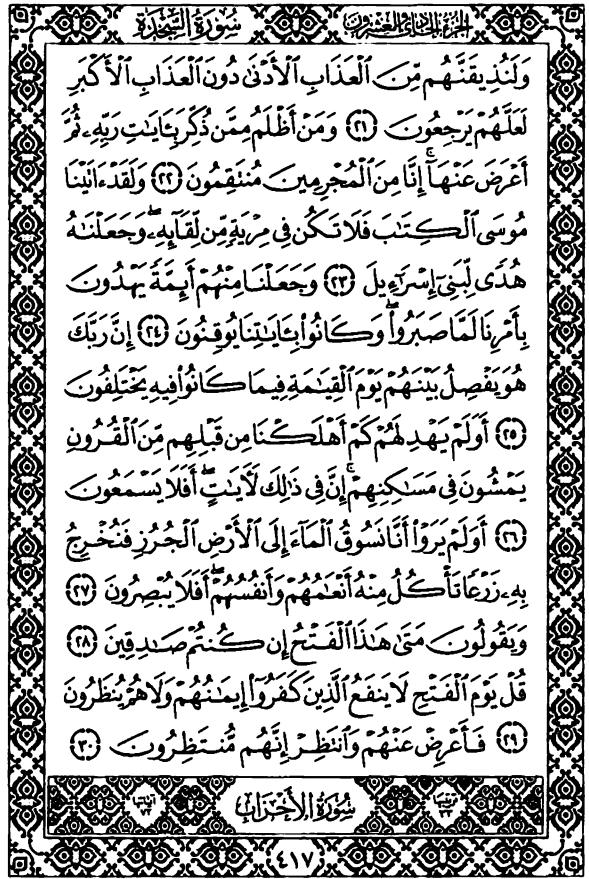 الجزء الحادي والعشرون سورة السجدة
وَلَنُذِيقَنَّهُم مِّنَ ٱلْعَذَابِ ٱلْأَدْنَىٰ دُونَ ٱلْعَذَابِ ٱلْأَكْبَرِ
لَعَلَّهُمْ يَرْجِعُونَ ٢١ وَمَنْ أَظْلَمُ مِمَّن ذُكِّرَ بِـَٔايَـٰتِ رَبِّهِۦ ثُمَّ
أَعْرَضَ عَنْهَآ ۚ إِنَّا مِنَ ٱلْمُجْرِمِينَ مُنتَقِمُونَ ٢٢ وَلَقَدْ ءَاتَيْنَا
مُوسَى ٱلْكِتَـٰبَ فَلَا تَكُن فِى مِرْيَةٍ مِّن لِّقَآئِهِۦ ۖ وَجَعَلْنَـٰهُ
هُدًى لِّبَنِىٓ إِسْرَٰٓءِيلَ ٢٣ وَجَعَلْنَا مِنْهُمْ أَئِمَّةً يَهْدُونَ
بِأَمْرِنَا لَمَّا صَبَرُوا۟ ۖ وَكَانُوا۟ بِـَٔايَـٰتِنَا يُوقِنُونَ ٢٤ إِنَّ رَبَّكَ
هُوَ يَفْصِلُ بَيْنَهُمْ يَوْمَ ٱلْقِيَـٰمَةِ فِيمَا كَانُوا۟ فِيهِ يَخْتَلِفُونَ
٢٥ أَوَلَمْ يَهْدِ لَهُمْ كَمْ أَهْلَكْنَا مِن قَبْلِهِم مِّنَ ٱلْقُرُونِ
يَمْشُونَ فِى مَسَـٰكِنِهِمْ ۚ إِنَّ فِى ذَٰلِكَ لَـَٔايَـٰتٍ ۖ أَفَلَا يَسْمَعُونَ
٢٦ أَوَلَمْ يَرَوْا۟ أَنَّا نَسُوقُ ٱلْمَآءَ إِلَى ٱلْأَرْضِ ٱلْجُرُزِ فَنُخْرِجُ
بِهِۦ زَرْعًا تَأْكُلُ مِنْهُ أَنْعَـٰمُهُمْ وَأَنفُسُهُمْ ۖ أَفَلَا يُبْصِرُونَ ٢٧
وَيَقُولُونَ مَتَىٰ هَـٰذَا ٱلْفَتْحُ إِن كُنتُمْ صَـٰدِقِينَ ٢٨
قُلْ يَوْمَ ٱلْفَتْحِ لَا يَنفَعُ ٱلَّذِينَ كَفَرُوٓا۟ إِيمَـٰنُهُمْ وَلَا هُمْ يُنظَرُونَ
٢٩ فَأَعْرِضْ عَنْهُمْ وَٱنتَظِرْ إِنَّهُم مُّنتَظِرُونَ ٣٠
سُورَةُ الأَحْزَابِ
٤١٧